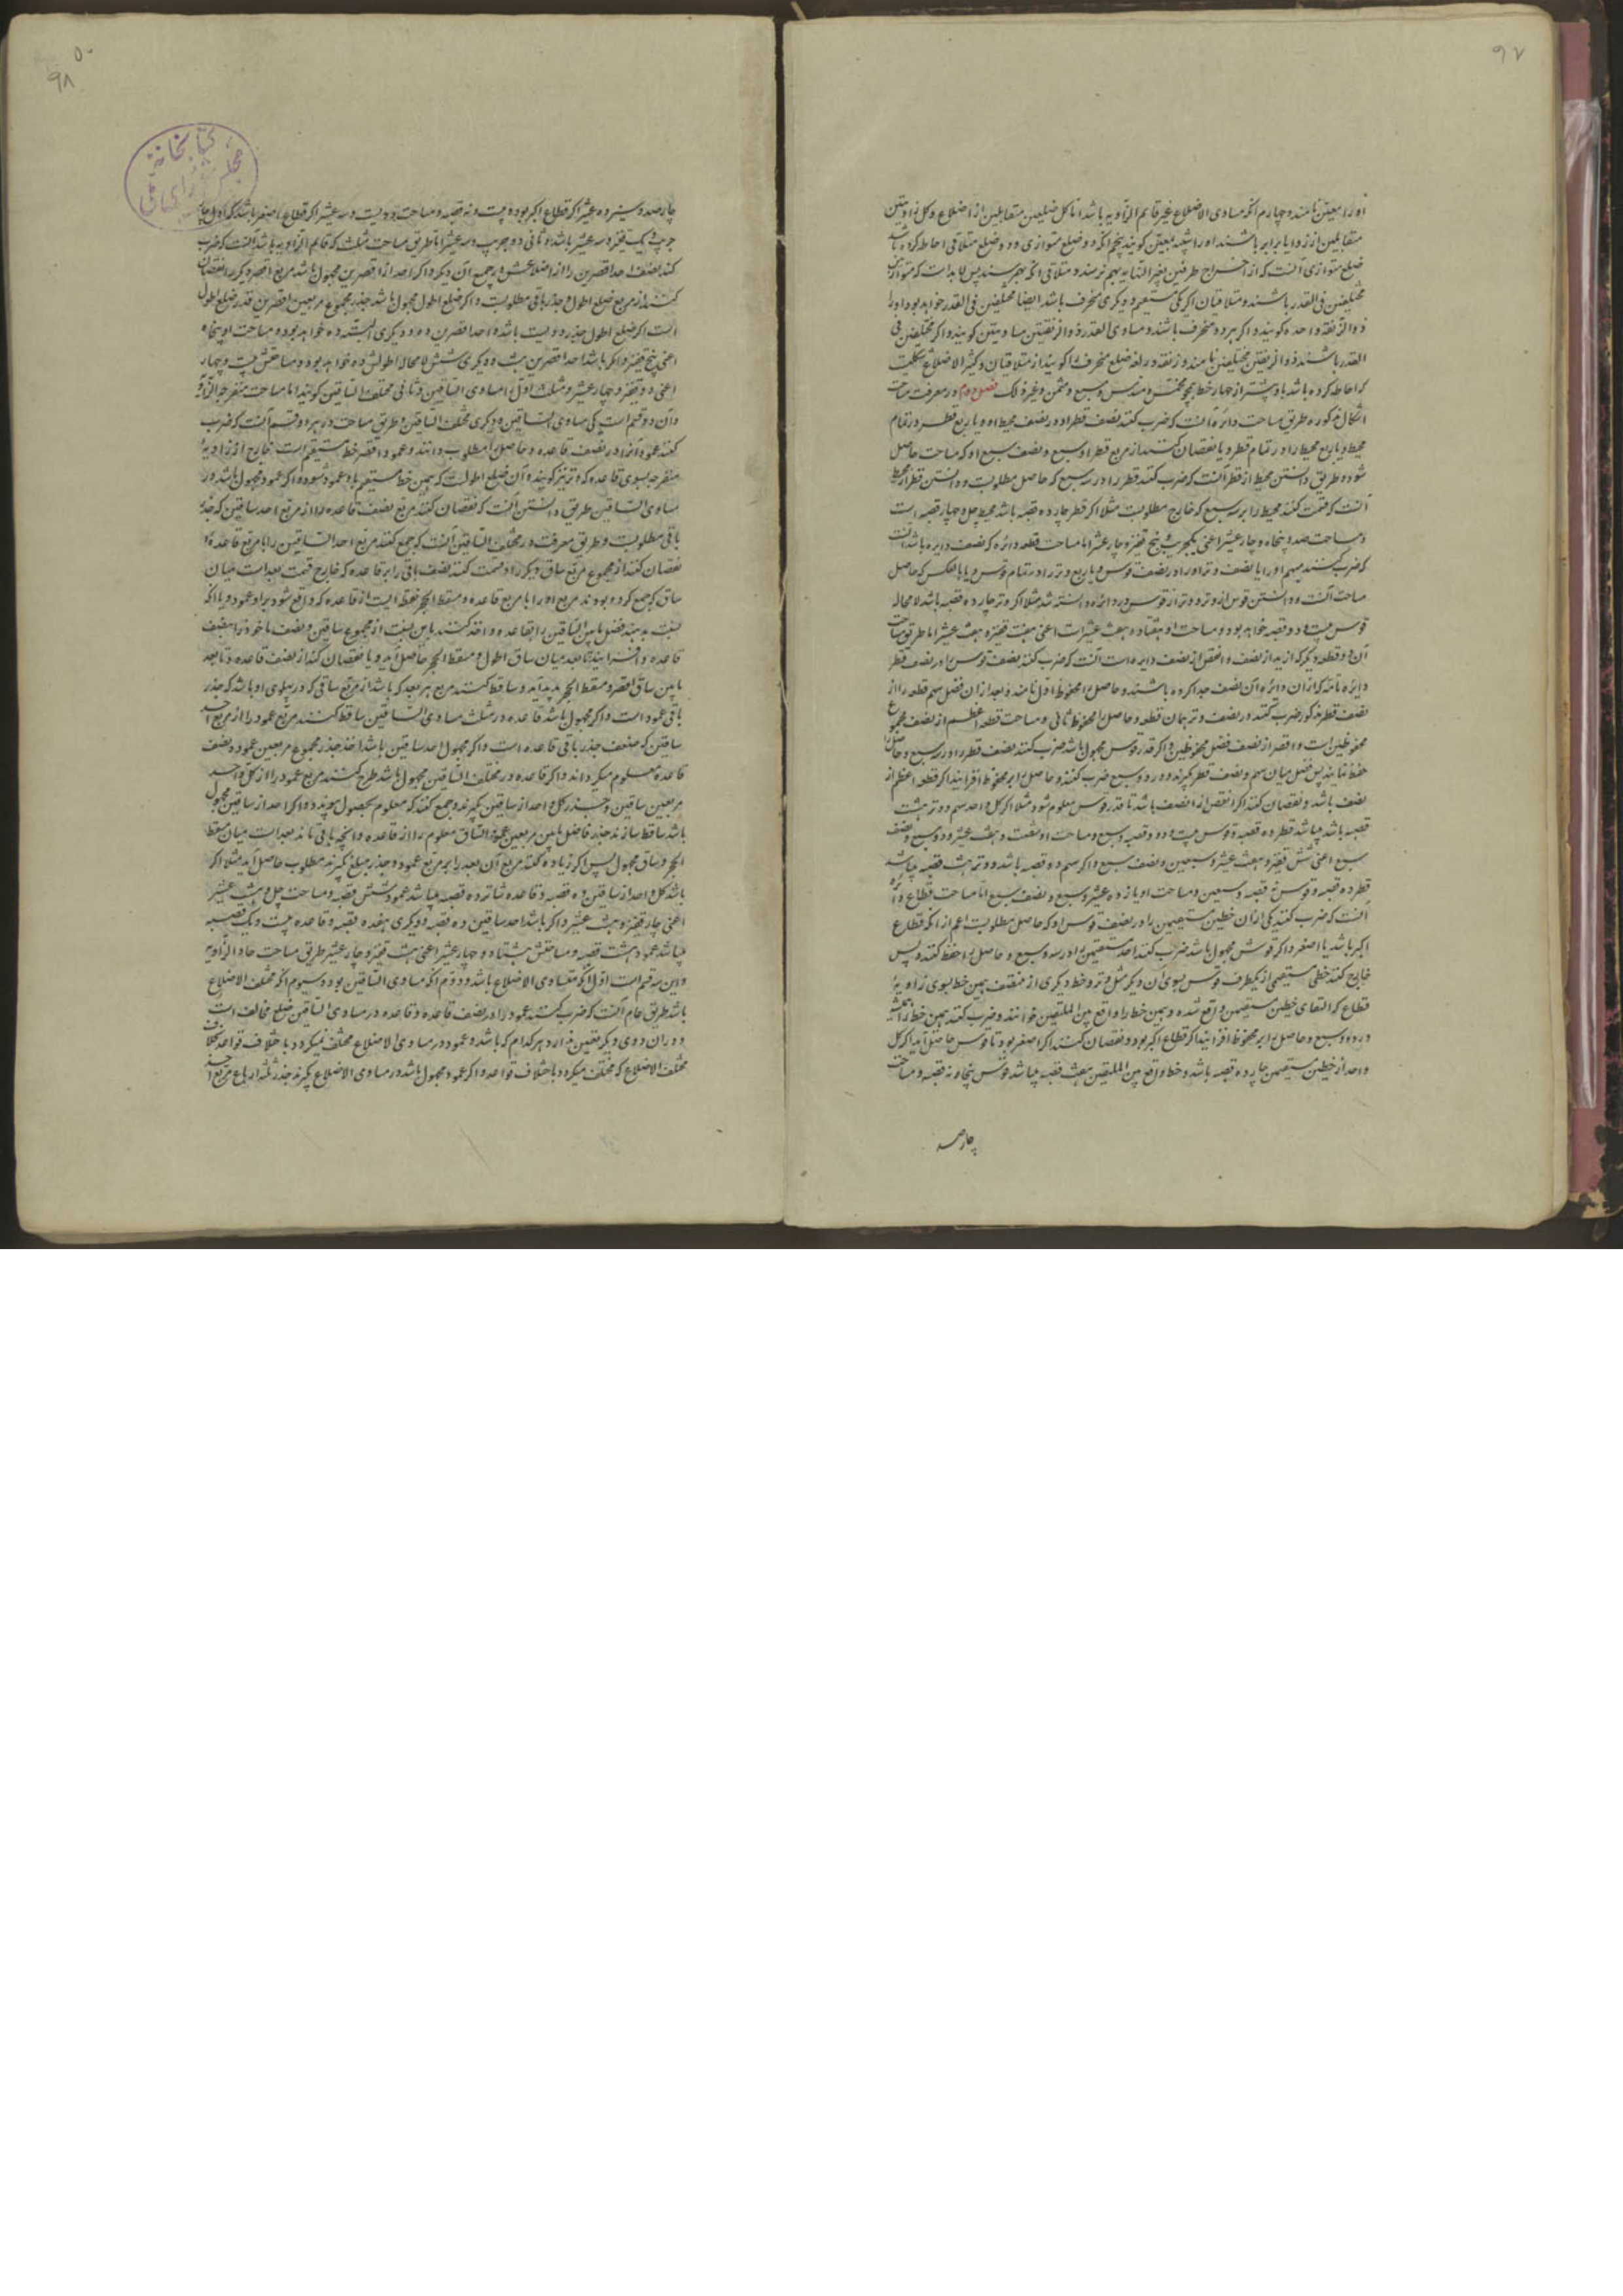 ۹۷
او را معین نامند و چهارم آنکه مساوی الاضلاع غیر قائم الزاویه باشد اما کل ضلعین متقابلین از اضلاع و کل زاویتین
متقابلین از زوایا برابر باشند او را شبیه معین گویند پنجم آنکه دو ضلع متوازی و دو ضلع متلاقی احاطه کرده باشد
ضلع متوازی آنست که از اخراج طرفین بغیر النهایه بهم نرسند و متلاقی آنکه بهم رسند پس لابد است که متوازیین
مختلفین فی القدر باشند و متلاقیان اگر یکی مستقیم و دیگری منحرف باشد ایضا مختلفین فی القدر خواهد بود او را
ذو الزنقة واحده گویند و اگر هر دو منحرف باشند و مساوی القدر ذو الزنقتین متساویتین گویند و اگر مختلفین فی
القدر باشند ذو الزنقتین مختلفتین نامند و زنقه در لغه ضلع منحرف را گویند از متلاقیان و کثیر الاضلاع شکلیست
که احاطه کرده باشد با او بیشتر از چهار خط همچو مخمس و مسدس و مسبع و مثمن و غیر ذلک فصل دوم در معرفت مساحت
اشکال مذکوره طریق مساحت دائره آنست که ضرب کنند نصف قطر او در نصف محیط او و یا ربع قطر در تمام
محیط و یا ربع محیط را در تمام قطر و یا نقصان کنند از مربع قطر او سبع و نصف سبع او که مساحت حاصل
شود و طریق دانستن محیط از قطر آنست که ضرب کنند قطر را در سه سبع که حاصل مطلوبست و دانستن قطر از محیط
آنست که قسمت کنند محیط را بر سه سبع که خارج مطلوبست مثلا اگر قطر چارده قصبه باشد محیط چل و چهار قصبه است
و مساحت صد و پنجاه و چار عشیر اعنی یکجریب و پنج قفیز و چار عشیر اما مساحت قطعه دائره که نصف دایره باشد آنست
که ضرب کنند سهم او را یا نصف وتر او را در نصف قوس و یا ربع وتر را در تمام قوس و یا بالعکس که حاصل
مساحت آنست و دانستن قوس از وتر و وتر از قوس در دائره دانسته شد مثلا اگر وتر چارده قصبه باشد لامحاله
قوس بیست و دو قصبه خواهد بود و مساحت او هفتاد و هفت عشیرات اعنی هفت قفیز و هفت عشیر اما طریق مساحت
آن دو قطعه دیگر که ازید از نصف و انقص از نصف دایره است آنست که ضرب کنند نصف قوس او در نصف قطر
دایره تامه که از آن دایره آن نصف جدا کرده باشند و حاصل را محفوظ اول نامند و بعد از ان فضل سهم قطعه را از
نصف قطر مذکور ضرب کنند در نصف وتر همان قطعه و حاصل را محفوظ ثانی و مساحت قطعه اعظم از نصف مجموع
محفوظین است و اقصر از نصف فضل محفوظین و اگر قدر قوس مجهول باشد ضرب کنند نصف قطر را در سه سبع و حاصل را
حفظ نمایند پس فضل میان سهم و نصف قطر گیرند و در دو سبع ضرب کنند و حاصل را بر محفوظ افزایند اگر قطعه اعظم از
نصف باشد و نقصان کنند اگر انقص از نصف باشد تا قدر قوس معلوم شود مثلا اگر کل واحد سهم و وتر هشت
قصبه باشد میباشد قطر ده قصبه و قوس بیست و دو قصبه و سبع و مساحت او شصت و هشت عشیر و دو سبع و نصف
سبع اعنی شش قفیز و هشت عشیر و سبعین و نصف سبع و اگر سهم دو قصبه باشد و وتر هشت قصبه میباشد
قطر ده قصبه و قوس نه قصبه و سبعین و مساحت او یازده عشیر و سبع و نصف سبع اما مساحت قطاع دائره
آنست که ضرب کنند یکی از ان خطین مستقیمین را در نصف قوس او که حاصل مطلوبست اعم از آنکه قطاع
اکبر باشد یا اصغر و اگر قوس مجهول باشد ضرب کنند احد مستقیمین را در سه و سبع و حاصل را حفظ کنند و پس
خارج کنند خطی مستقیمی از یکطرف قوس بسوی آن دیگر مثل وتر و خط دیگری از منتصف بهمین خط بسوی زاویهٔ
قطاع که التقای خطین مستقیمین واقع شده و بهمین خط را واقع بین الملتقیین خوانند و ضرب کنند بهمین خط را
در دو سبع و حاصل را بر محفوظ افزایند اگر قطاع اکبر بود و نقصان کنند اگر اصغر بود تا قوس حاصل آید اگر کل
واحد از خطین مستقیمین چارده قصبه باشد و خط واقع بین الملتقیین هفت قصبه میباشد قوس پنجاه و نه قصبه و مساحت
چارصد
۵۰
۹۸
کتابخانه مجلس شورای ملی
چارصد و سیزده عشیر اگر قطاع اکبر بود و بیست و نه قصبه و مساحت دویست و سه عشیر اگر قطاع اصغر باشد که اول چار
جریب و یک قفیز و سه عشیر باشد و ثانی دو جریب و سه عشیر اما طریق مساحت مثلث که قائم الزاویه باشد آنست که ضرب
کنند نصف احد اقصرین را از اضلاعش در جمیع آن دیگر و اگر احد از اقصرین مجهول باشد مربع اقصر دیگر را نقصان
کنند از مربع ضلع اطول و جذر باقی مطلوبست و اگر ضلع اطول مجهول باشد جذر مجموع مربعین اقصرین قدر ضلع اطول
است اگر ضلع اطول جذر دویست باشد و احد اقصرین ده و دیگری البته ده خواهد بود و مساحت او پنجاه
اعنی پنج قفیز و اگر باشد احد اقصرین هشت و دیگری شش لامحاله اطولش ده خواهد بود و مساحتش بیست و چهار
اعنی دو قفیز و چهار عشیر و مثلث اول را مساوی الساقین و ثانی مختلف الساقین گویند اما مساحت منفرجة الزاویه
و آن دو قسم است یکی مساوی الساقین و دیگری مختلف الساقین و طریق مساحت در هر دو قسم آنست که ضرب
کنند عمود آنرا در نصف قاعده و حاصل را مطلوب دانند و عمود اقصر خط مستقیم است خارج از زاویهٔ
منفرجه بسوی قاعده که وتر نیز گویند و آن ضلع اطولست که بهمین خط مستقیم باو عمود شود و اگر عمود مجهول باشد در
مساوی الساقین طریق دانستن آنست که نقصان کنند مربع نصف قاعده را از مربع احد ساقین که جذر
باقی مطلوبست و طریق معرفت در مختلف الساقین آنست که جمع کنند مربع احد الساقین را با مربع قاعده و
نقصان کنند از مجموع مربع ساق دیگر را و قسمت کنند نصف باقی را بر قاعده که خارج قسمت بعد است میان
ساق که جمع کرده بودند مربع او را با مربع قاعده و مسقط الحجر نقطه ایست از قاعده که واقع شود بر او عمود و یا آنکه
نسبت بدهند فضل مابین الساقین را بقاعده و اخذ کنند باین نسبت از مجموع ساقین و نصف ماخوذ را بنصف
قاعده و افزایند تا بعد میان ساق اطول و مسقط الحجر حاصل آید و یا نقصان کنند از نصف قاعده تا بعد
مابین ساق اقصر و مسقط الحجر پدید آید و ساقط کنند مربع هر بعد که باشد از مربع ساقی که در پهلوی او باشد که جذر
باقی عمود است و اگر مجهول باشد قاعده در مثلث مساوی الساقین ساقط کنند مربع عمود را از مربع احد
ساقین که ضعف جذر باقی قاعده است و اگر مجهول احد ساقین باشد اخذ جذر مجموع مربعین عمود و نصف
قاعده معلوم میگرداند و اگر قاعده در مختلف الساقین مجهول باشد طرح کنند مربع عمود را از کل واحد
مربعین ساقین و جذر کل واحد از ساقین گیرند و جمع کنند که معلوم بحصول پیوندد و اگر احد از ساقین مجهول
باشد ساقط سازند جذر فاضل مابین مربعین عمود و الساق معلوم را از قاعده و آنچه باقی ماند بعد است میان مسقط
الحجر و ساق مجهول پس اگر زیاده کنند مربع آن بعد را بر مربع عمود و جذر مبلغ گیرند مطلوب حاصل آید مثلا اگر
باشد کل واحد از ساقین ده قصبه و قاعده شانزده قصبه میباشد عمود شش قصبه و مساحت چل و هشت عشیر
اعنی چار قفیز و هشت عشیر و اگر باشد احد ساقین ده قصبه و دیگری هفده قصبه و قاعده بیست و یک قصبه
میباشد عمود هشت قصبه و مساحتش هشتاد و چهار عشیر اعنی هشت قفیز و چار عشیر طریق مساحت حاد الزاویه
و این سه قسم است اول آنکه متساوی الاضلاع باشد و دوم آنکه مساوی الساقین بود و سیوم آنکه مختلف الاضلاع
باشد طریق عام آنست که ضرب کنند عمود را در نصف قاعده و قاعده در مساوی الساقین ضلع مخالف است
و در ان دوی دیگر تعیین ندارد هر کدام که باشد و عمود در مساوی الاضلاع مختلف نمیگردد باختلاف قواعد بخلاف
مختلف الاضلاع که مختلف میگردد باختلاف قواعد و اگر عمود مجهول باشد در مساوی الاضلاع گیرند جذر ثلثه ارباع مربع احد